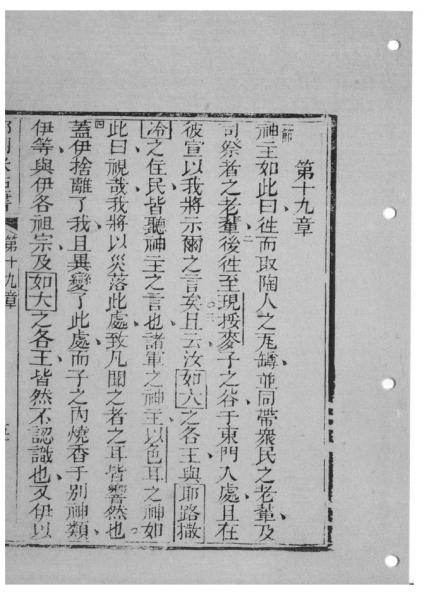 第十九章
一節 神主如此曰徃而取陶人之瓦罇並同帶衆民之老輩及
司祭者之老輩二後徃至現挼麥子之谷于東門入處且在
彼宣以我將示爾之言矣三且云汝如大之各王與耶路撒
冷之住民皆聽神主之言也諸軍之神主以色耳之神如
此曰視哉我將以災落此處致凡聞之者之耳皆響然也
四蓋伊捨離了我且異變了此處而于之內燒香于別神類
伊等與伊各祖宗及如大之各王皆然不認識也又伊以
第十九章